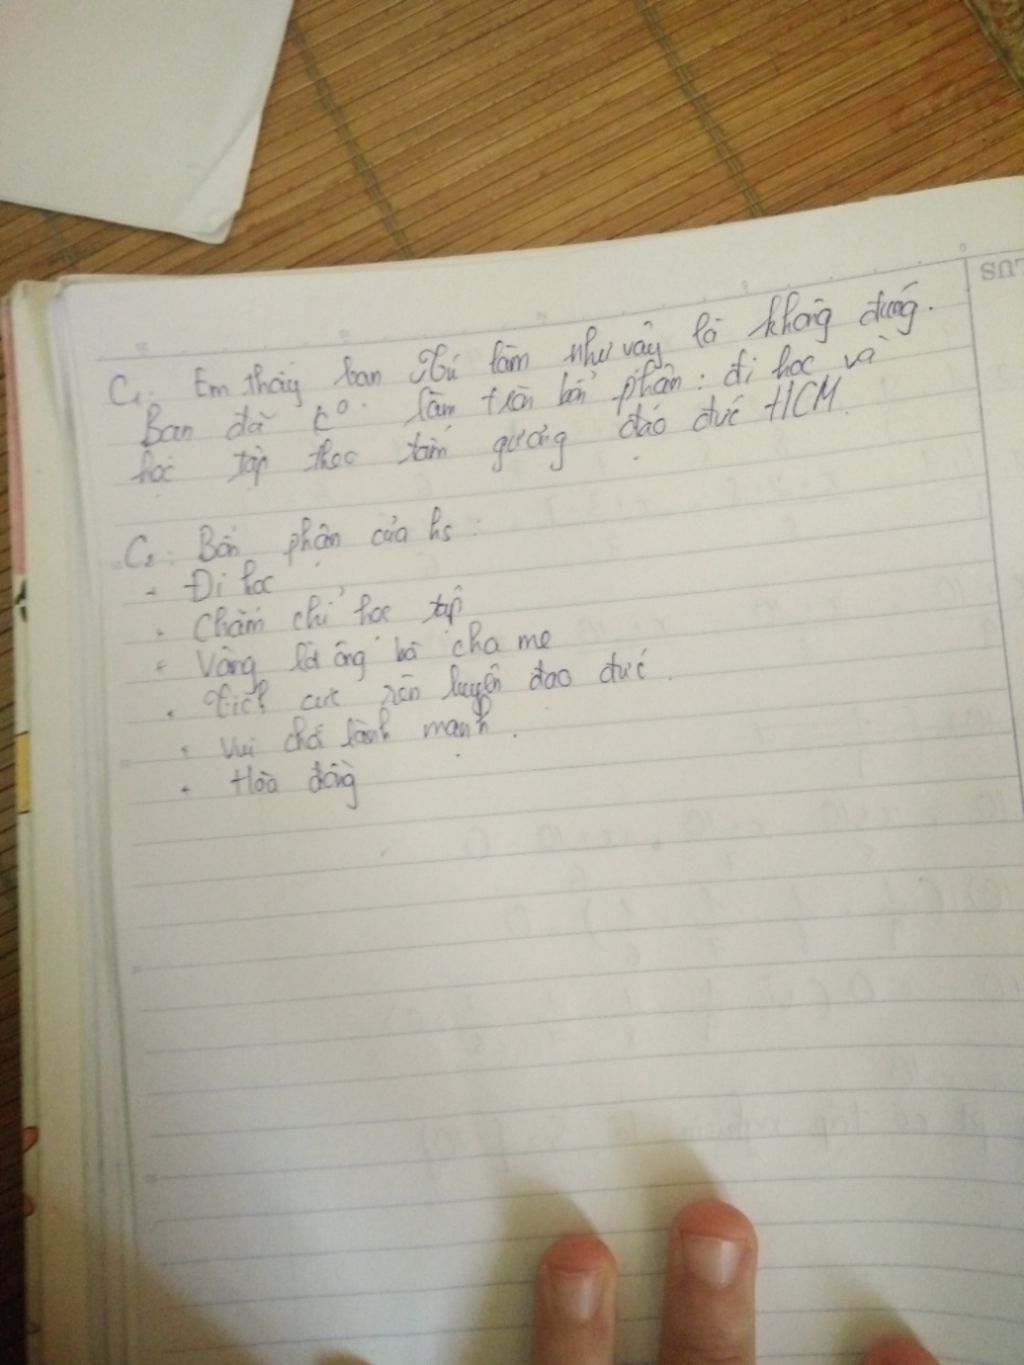 C1: Em thấy bạn Tú làm như vậy là không đúng.
Bạn đã k⁰ làm tròn bổn phận: đi học và
học tập theo tấm gương đạo đức HCM.
C2: Bổn phận của hs:
- Đi học
- Chăm chỉ học tập
- Vâng lời ông bà cha mẹ
- Tích cực rèn luyện đạo đức.
- Vui chơi lành mạnh.
- Hòa đồng